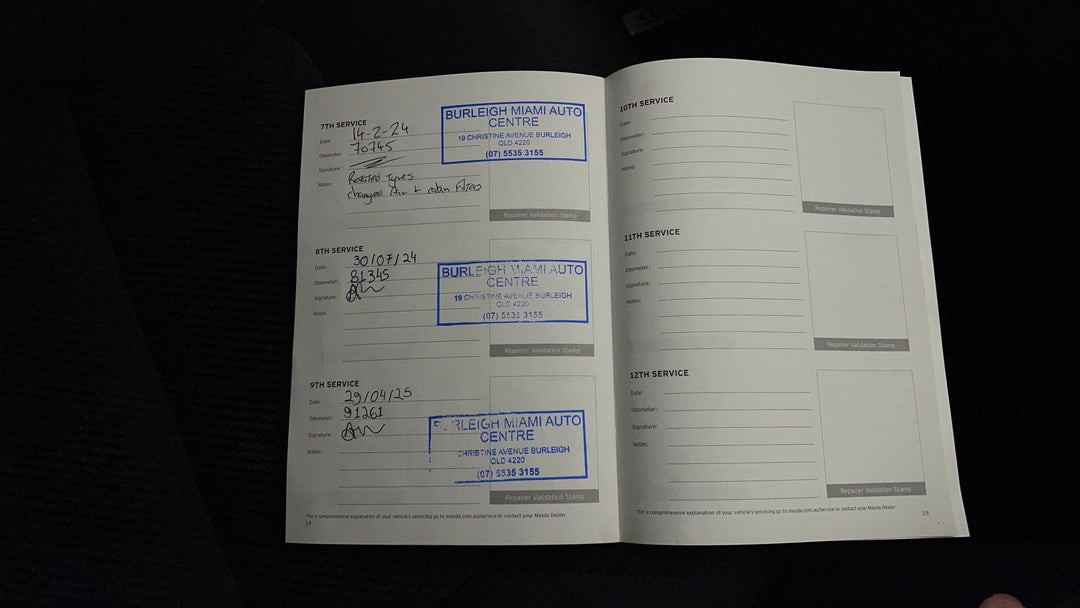 7TH SERVICE
Date: 14-2-24
Odometer: 70745
Signature:
Notes: Rotated tyres
changed Air + cabin
BURLEIGH MIAMI AUTO
CENTRE
19 CHRISTINE AVENUE BURLEIGH
QLD 4220
(07) 5535 3155
Repairer Validation Stamp
8TH SERVICE
Date: 30/07/24
Odometer: 81345
Signature:
Notes:
BURLEIGH MIAMI AUTO
CENTRE
19 CHRISTINE AVENUE BURLEIGH
QLD 4220
(07) 5535 3155
Repairer Validation Stamp
9TH SERVICE
Date: 29/04/25
Odometer: 91261
Signature:
Notes:
BURLEIGH MIAMI AUTO
CENTRE
CHRISTINE AVENUE BURLEIGH
QLD 4220
(07) 5535 3155
Repairer Validation Stamp
*For a comprehensive explanation of your vehicle's servicing go to mazda.com.au/service or contact your Mazda Dealer
14
10TH SERVICE
Date:
Odometer:
Signature:
Notes:
Repairer Validation Stamp
11TH SERVICE
Date:
Odometer:
Signature:
Notes:
Repairer Validation Stamp
12TH SERVICE
Date:
Odometer:
Signature:
Notes:
Repairer Validation Stamp
*For a comprehensive explanation of your vehicle's servicing go to mazda.com.au/service or contact your Mazda Dealer
15